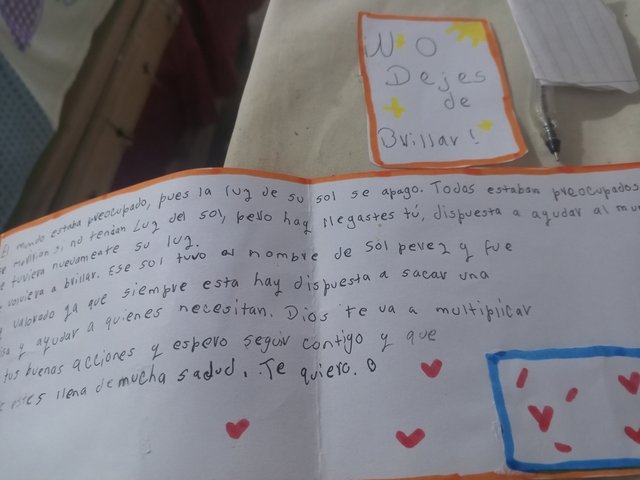 NO
Dejes
de
Brillar!
El mundo estaba preocupado, pues la luz de su sol se apago. Todos estaban preocupados
se moririan si no tendan Luz del sol, pero hay llegastes tú, dispuesta a ayudar al mun
e tuviera nuevamente su luz.
volviera a brillar. Ese sol tuvo as nombre de Sol perez y fue
valorado ya que siempre esta hay dispuesta a sacar una
isa y ayudar a quienes necesitan. Dios te va a multiplicar
tus buenas acciones y espero seguir contigo y que
estes llena de mucha salud. Te quiero.